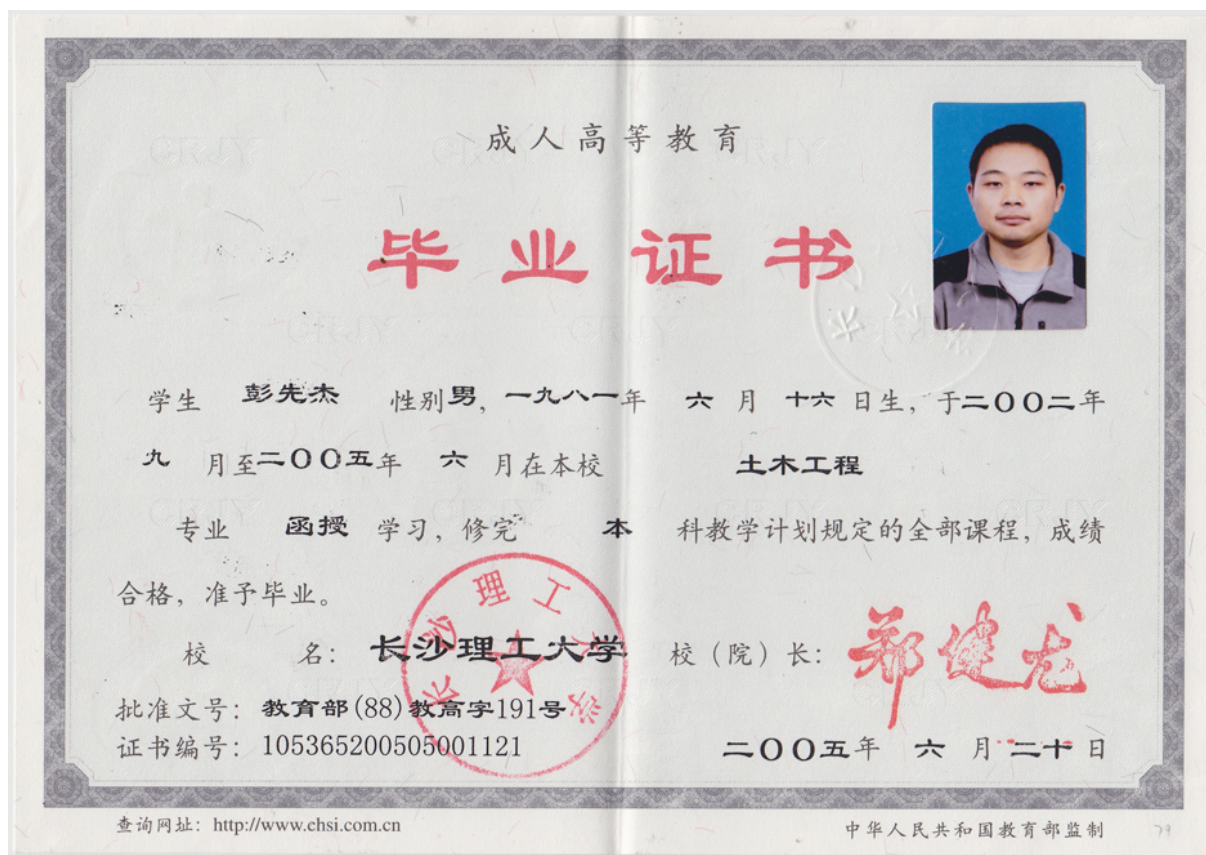 成人高等教育
毕业证书
学生 彭先杰 性别男，一九八一年 六 月 十六 日生，于二〇〇二年
九 月至二〇〇五年 六 月在本校 土木工程
专业 函授 学习，修完 本 科教学计划规定的全部课程，成绩
合格，准予毕业。
校 名：长沙理工大学 校（院）长：郑健龙
长沙理工大学
批准文号：教育部(88)教高字191号
证书编号：105365200505001121
二〇〇五年 六 月二十日
查询网址：http://www.chsi.com.cn
中华人民共和国教育部监制